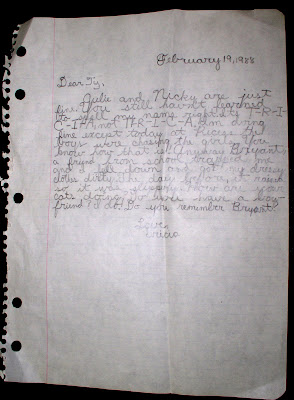 February 19, 1988
Dear Ty,
Julie and Nicky are just
fine. You still havn't learned
to spell my name right it's T-R-I-
C-I-A, not T-R-I-A. I am doing
fine except today at Recess the
boys were chasing the girls. You
know how that is! Anyways Bryant
a friend from school tripped me
and I fell down and got my dressy
clothes dirty. The day before it rained
so it was slippery. How are your
cats doing? Do you have a boy-
friend? I do. Do you remember Bryant?
Love,
Tricia